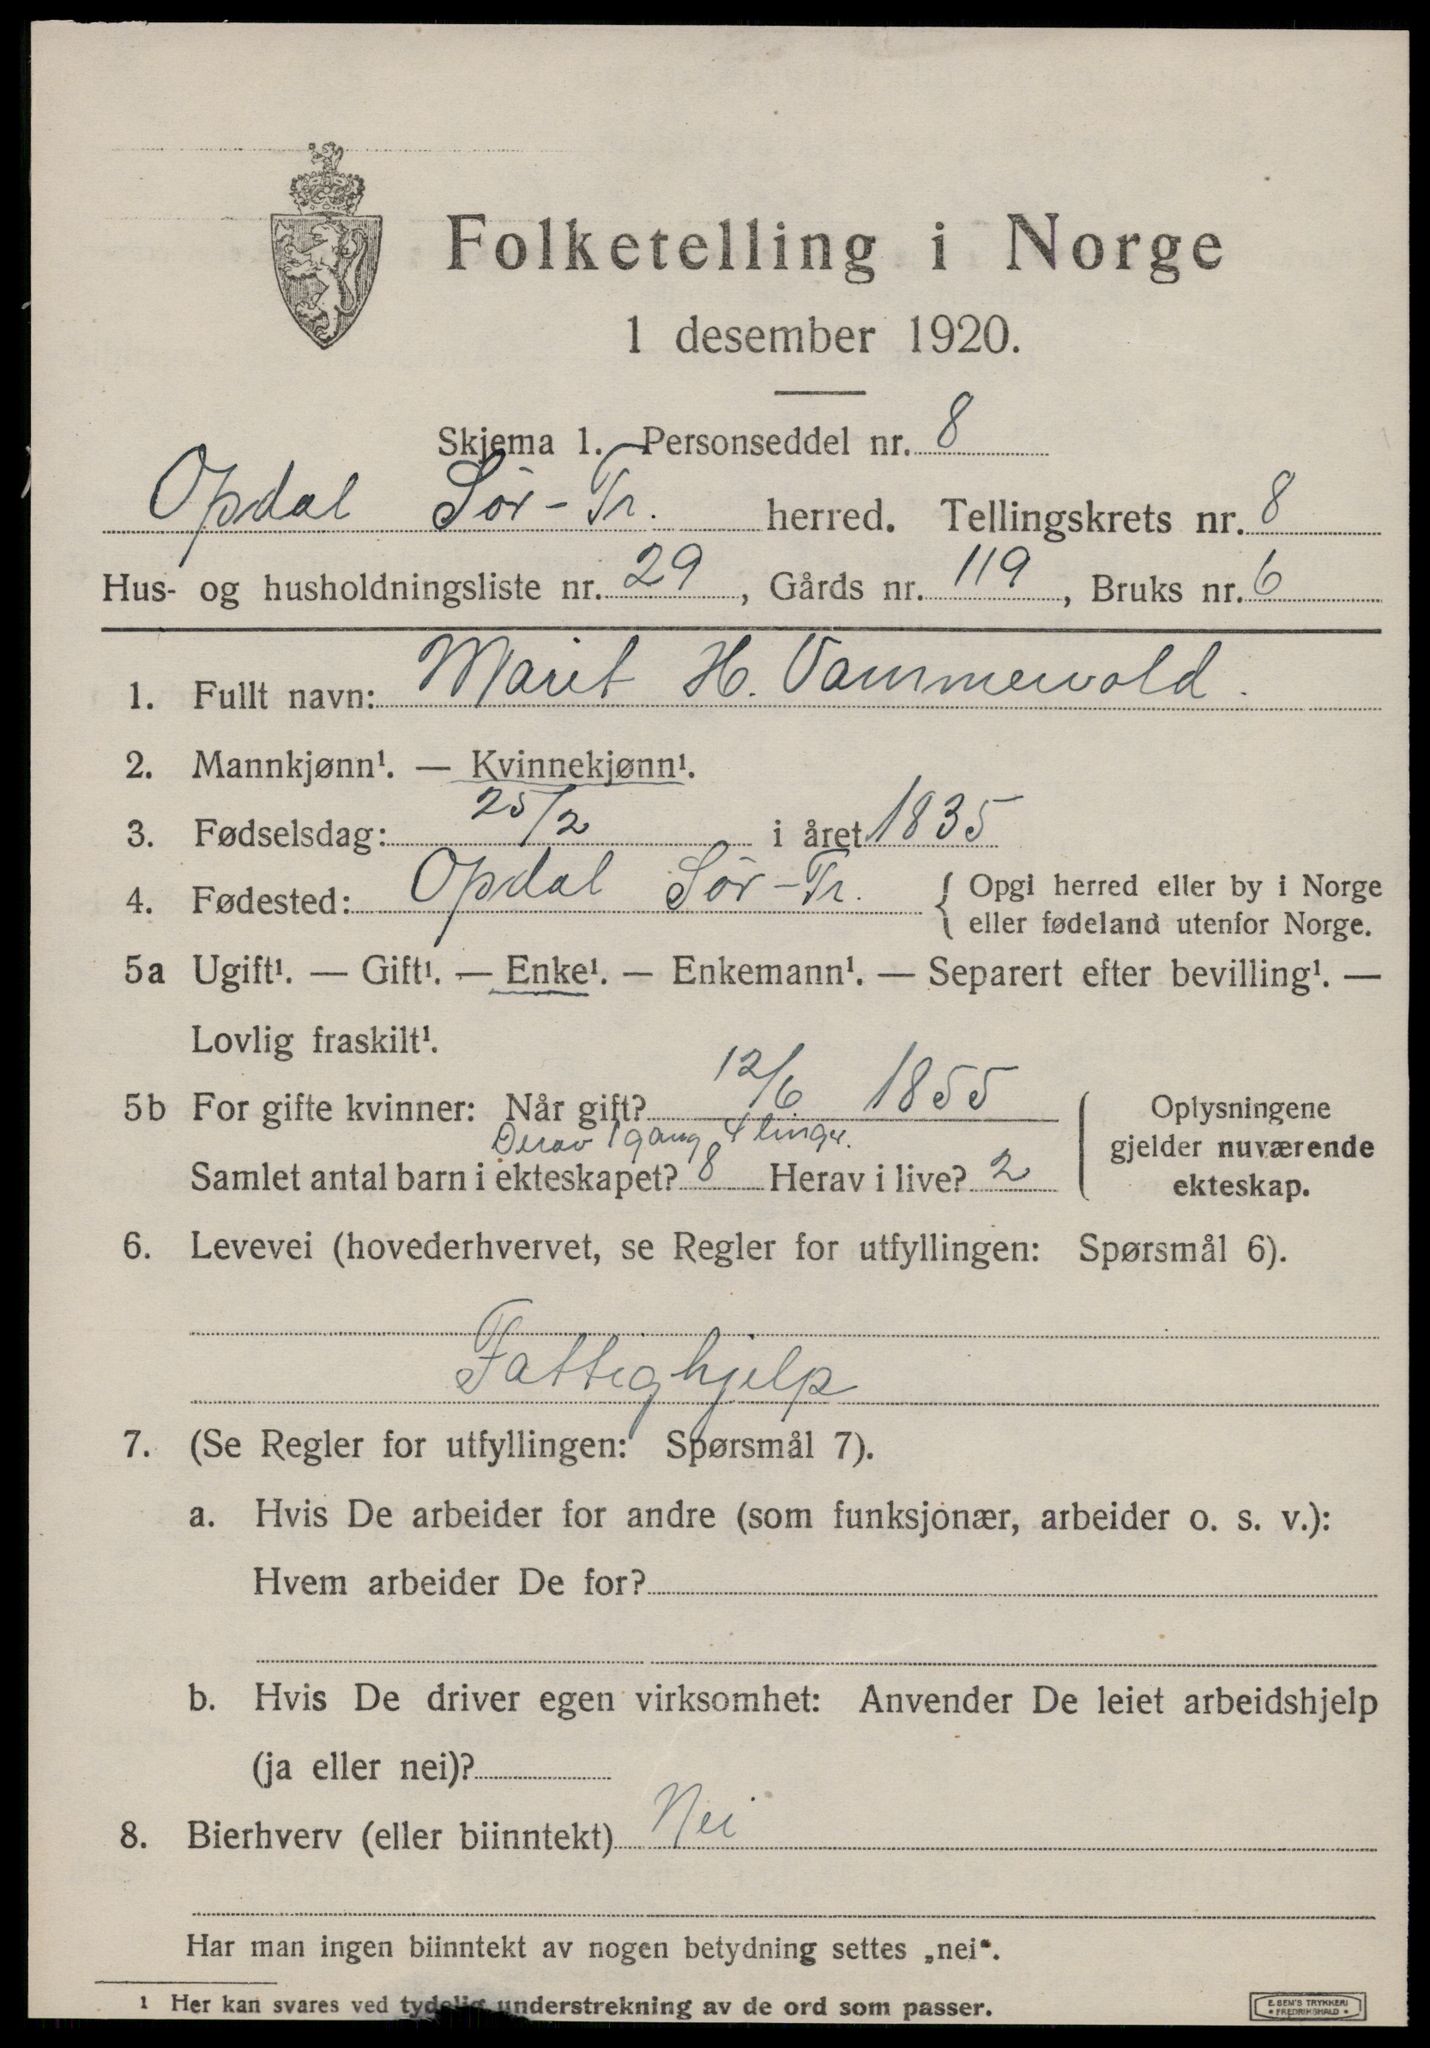 Folketelling i Norge
1 desember 1920.
Skjema 1. Personseddel nr. 8
Opdal Sør-Tr. herred. Tellingskrets nr. 8
Hus- og husholdningsliste nr. 29, Gårds nr. 119, Bruks nr. 6
1. Fullt navn: Marit H. Vammervold.
2. Mannkjønn¹. — Kvinnekjønn¹.
3. Fødselsdag: 25/2 i året 1835
4. Fødested: Opdal Sør-Tr. { Opgi herred eller by i Norge
eller fødeland utenfor Norge.
5a Ugift¹. — Gift¹. — Enke¹. — Enkemann¹. — Separert efter bevilling¹. —
Lovlig fraskilt¹.
5b For gifte kvinner: Når gift? 12/6 1855
Derav 1 gang
Samlet antal barn i ekteskapet? 8 Herav i live? 2
Oplysningene
gjelder nuværende
ekteskap.
6. Levevei (hovederhvervet, se Regler for utfyllingen: Spørsmål 6).
Fattighjelp
7. (Se Regler for utfyllingen: Spørsmål 7).
a. Hvis De arbeider for andre (som funksjonær, arbeider o. s. v.):
Hvem arbeider De for?
b. Hvis De driver egen virksomhet: Anvender De leiet arbeidshjelp
(ja eller nei)?
8. Bierhverv (eller biinntekt) Nei
Har man ingen biinntekt av nogen betydning settes „nei“.
1 Her kan svares ved tydelig understrekning av de ord som passer.
E. SEM'S TRYKKERI
• FREDRIKSHALD •